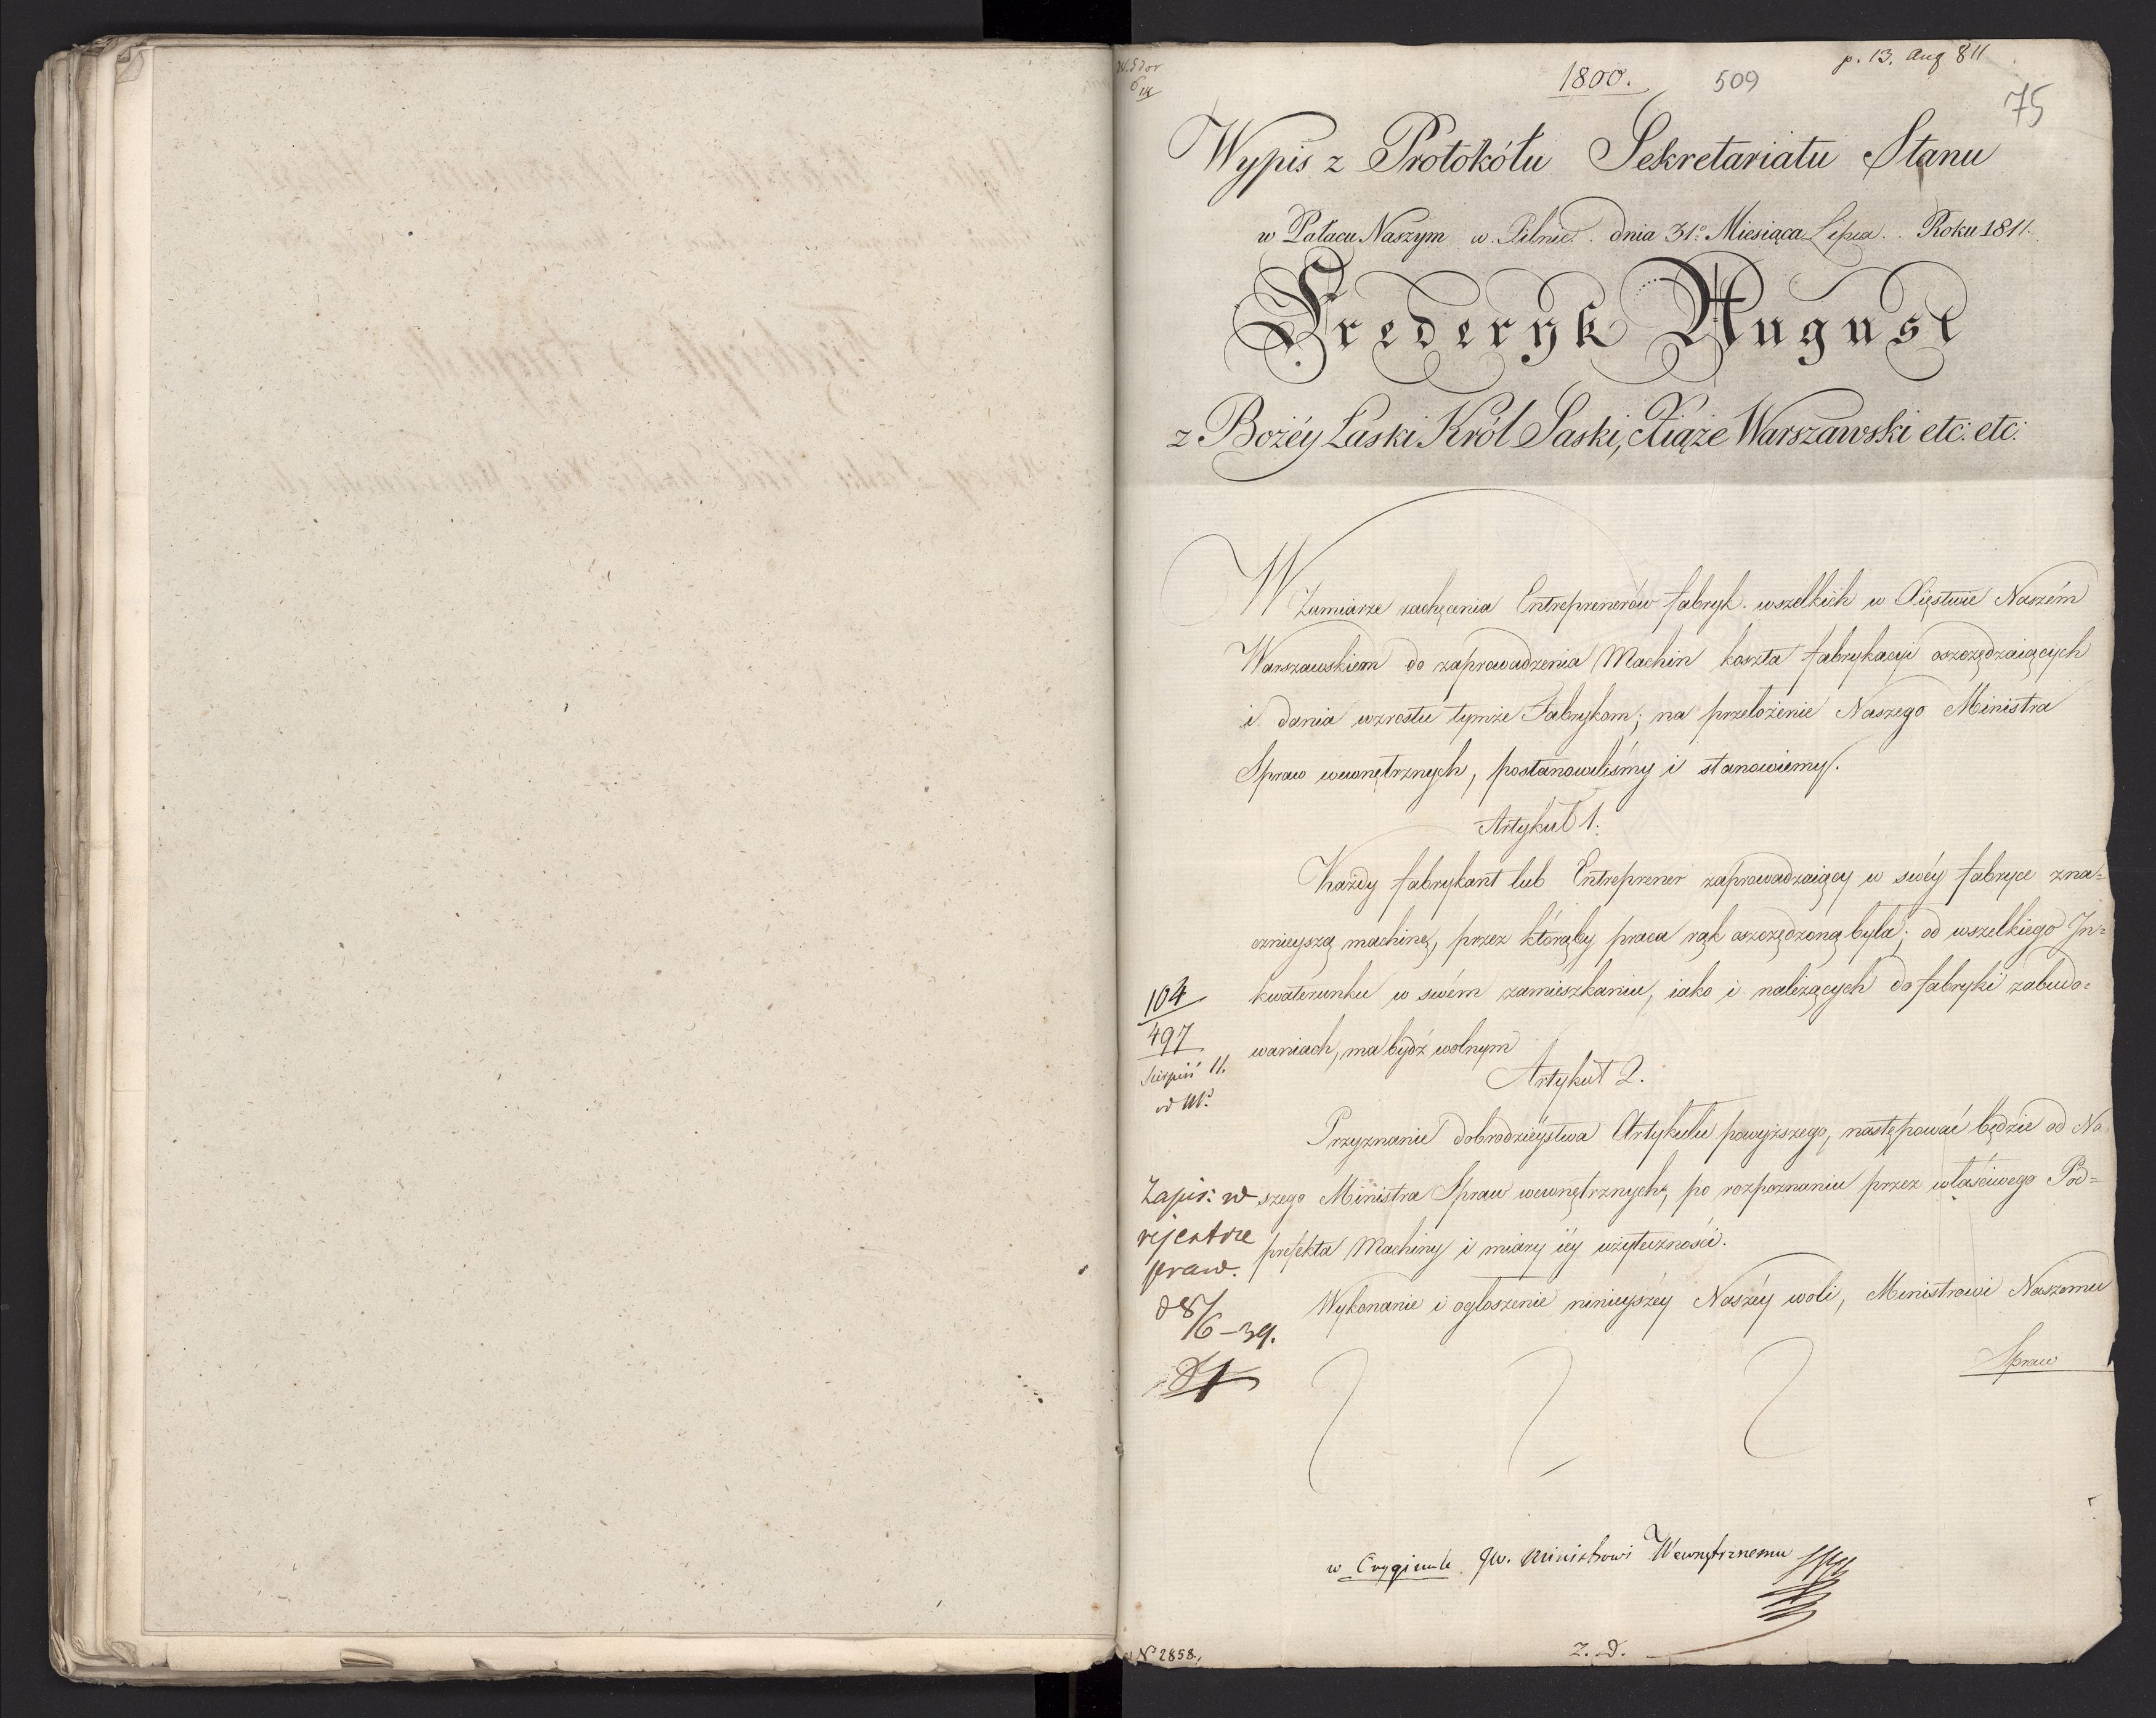 p. 13. Aug 811
1800. 509
75
Wypis z Protokółu Sekretariatu Stanu
w Pałacu Naszym w Pilnic. dnia 31º Miesiąca Lipca. Roku 1811.
Frederyk August
z Bożéy Łaski Król Saski, Xiąże Warszawski etc: etc:
W Zamiarze zachęcenia Entreprenerów fabryk wszelkich w Xięstwie Naszém
Warszawskiem do zaprowadzenia Machin koszta fabrykacyi oszczędzaiących
i dania wzrostu tymże Fabrykom; na przełożenie Naszego Ministra
Spraw wewnętrznych, postanowiliśmy i stanowiemy.
Artykuł 1.
Każdy fabrykant lub Entreprener zaprowadzaiący w swéy fabryce zna=
cznieyszą machinę, przez którąby praca rąk oszczędzoną była; od wszelkiego In=
kwaterunku w swém zamieszkaniu, iako i należących do fabryki zabudo=
waniach, ma bydź wolnym
104
497
Sierpień 11.
Artykuł 2.
Przyznanie dobrodzieystwa Artykułu powyższego, następować będzie od Na
szego Ministra Spraw wewnętrznych, po rozpoznaniu przez właściwego Pod=
prefekta Machiny i miary iéy użyteczności.
Zapis: w
rejestrze
praw.
d 8/6 – 39.
Wykonanie i ogłoszenie ninieyszéy Naszéy woli, Ministrowi Naszemu
Spraw
w Oryginale JW. Ministrowi Wewnętrznemu
Z. D.
Nº 2858.